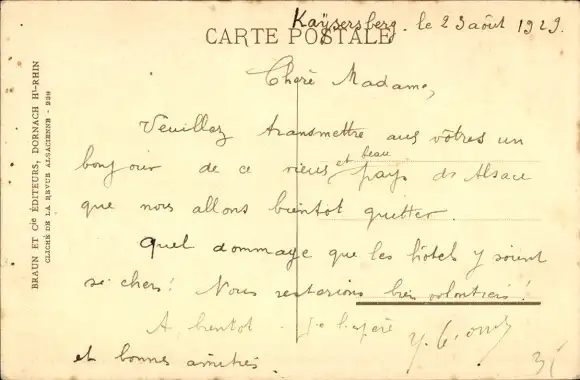 Kaysersberg. le 23 août 1929.
CARTE POSTALE
Chère Madame,
Veuillez transmettre aux vôtres un
bonjour de ce vieux et beau pays d'Alsace
que nous allons bientôt quitter.
Quel dommage que les hôtels y soient
si chers! Nous resterions bien volontiers!
A bientôt. je l'espère
et bonnes amitiés.
BRAUN ET Cie ÉDITEURS, DORNACH Ht-RHIN
CLICHÉ DE LA REVUE ALSACIENNE -